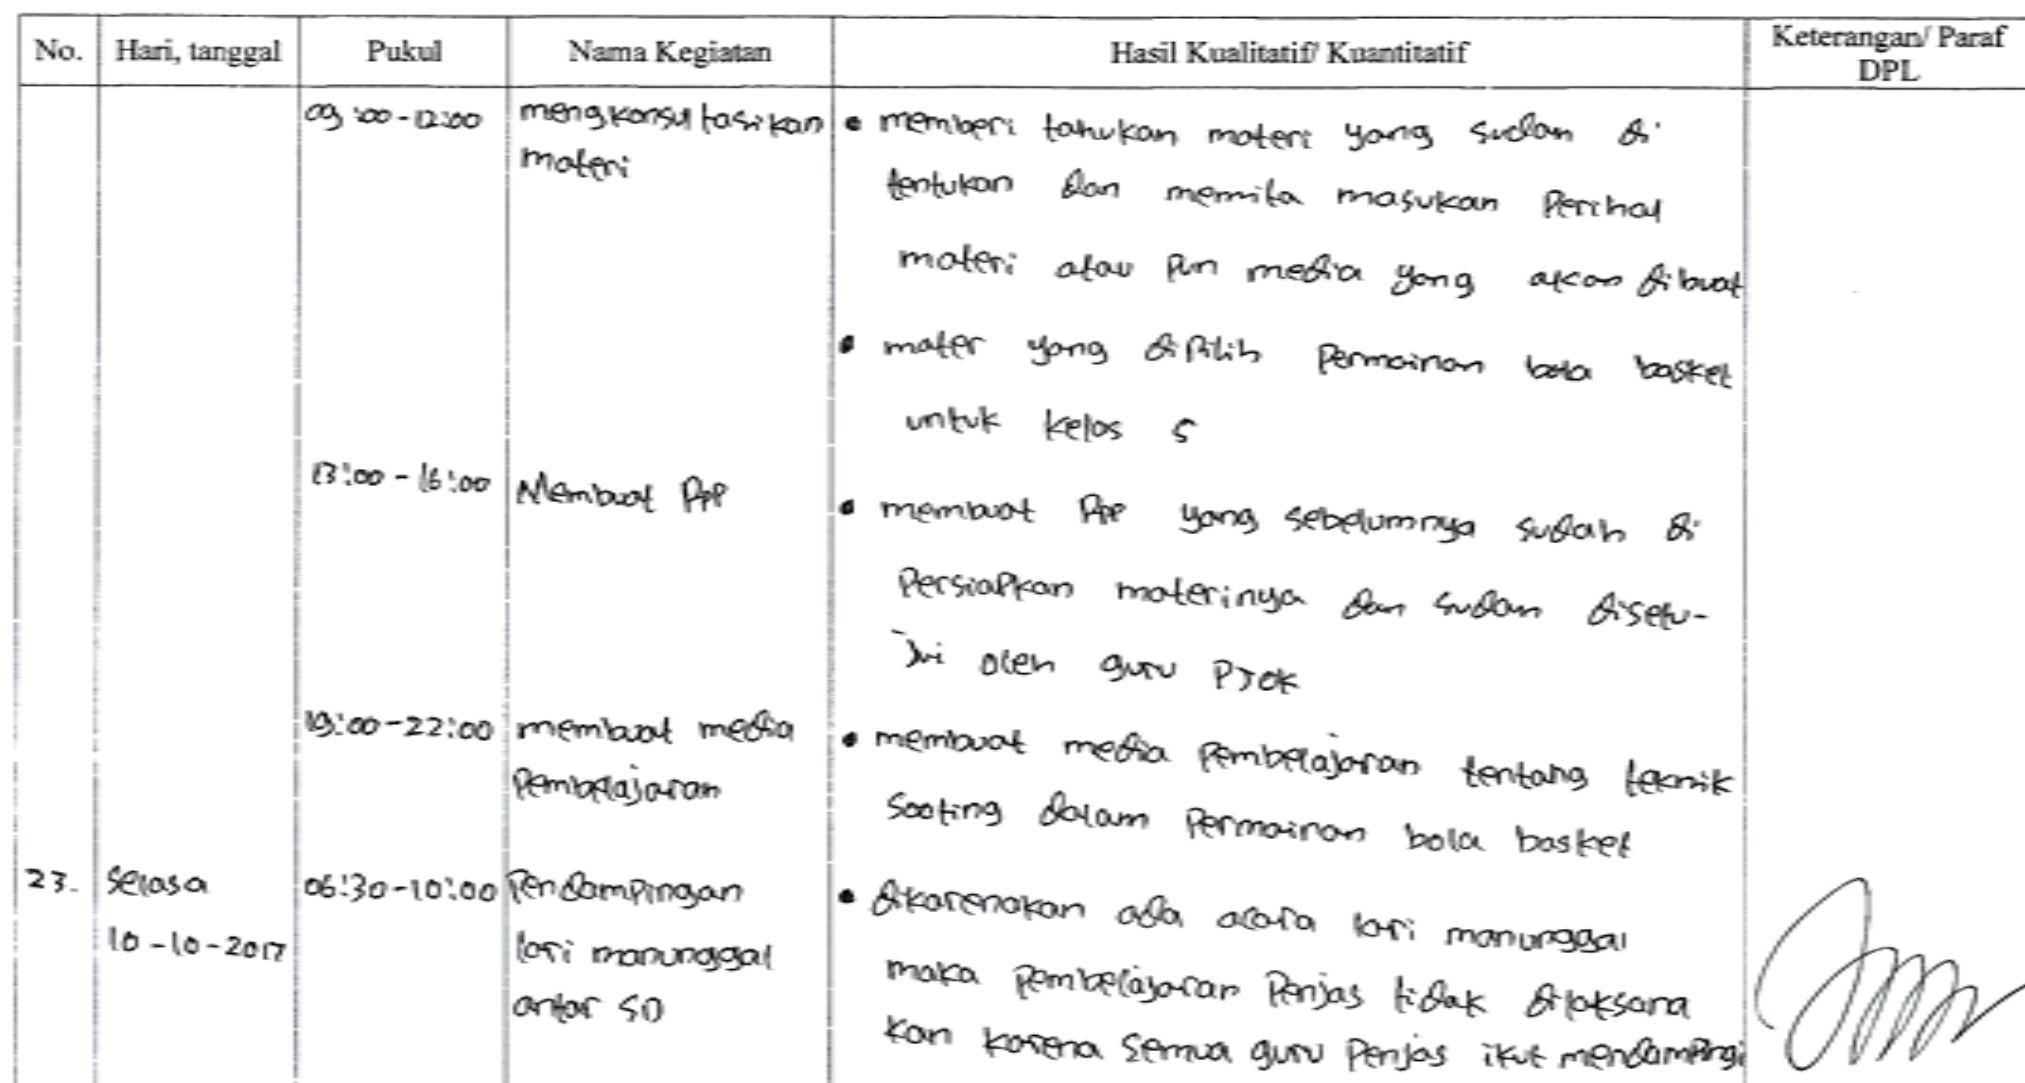 No. Hari, tanggal Pukul Nama Kegiatan Hasil Kualitatif/ Kuantitatif Keterangan/ Paraf DPL
09:00-12:00 mengkonsultasikan • memberi tahukan materi yang sudah di
materi tentukan dan memita masukan Perihal
materi atau Pun media yang akan dibuat
• mater yang diPilih Permainan bola basket
untuk kelas 5
13:00-16:00 Membuat RPP • membuat RPP yang sebelumnya sudah di
Persiapkan materinya dan sudah disetu-
jui oleh guru PJOK
19:00-22:00 membuat media • membuat media Pembelajaran tentang teknik
Pembelajaran Sooting dalam Permainan bola basket
23. Selasa 06:30-10:00 Pendampingan • dikarenakan ada acara lari manunggal
10-10-2017 lari manunggal maka Pembelajaran Penjas tidak dilaksana
antar SD kan karena Semua guru Penjas ikut mendampingi